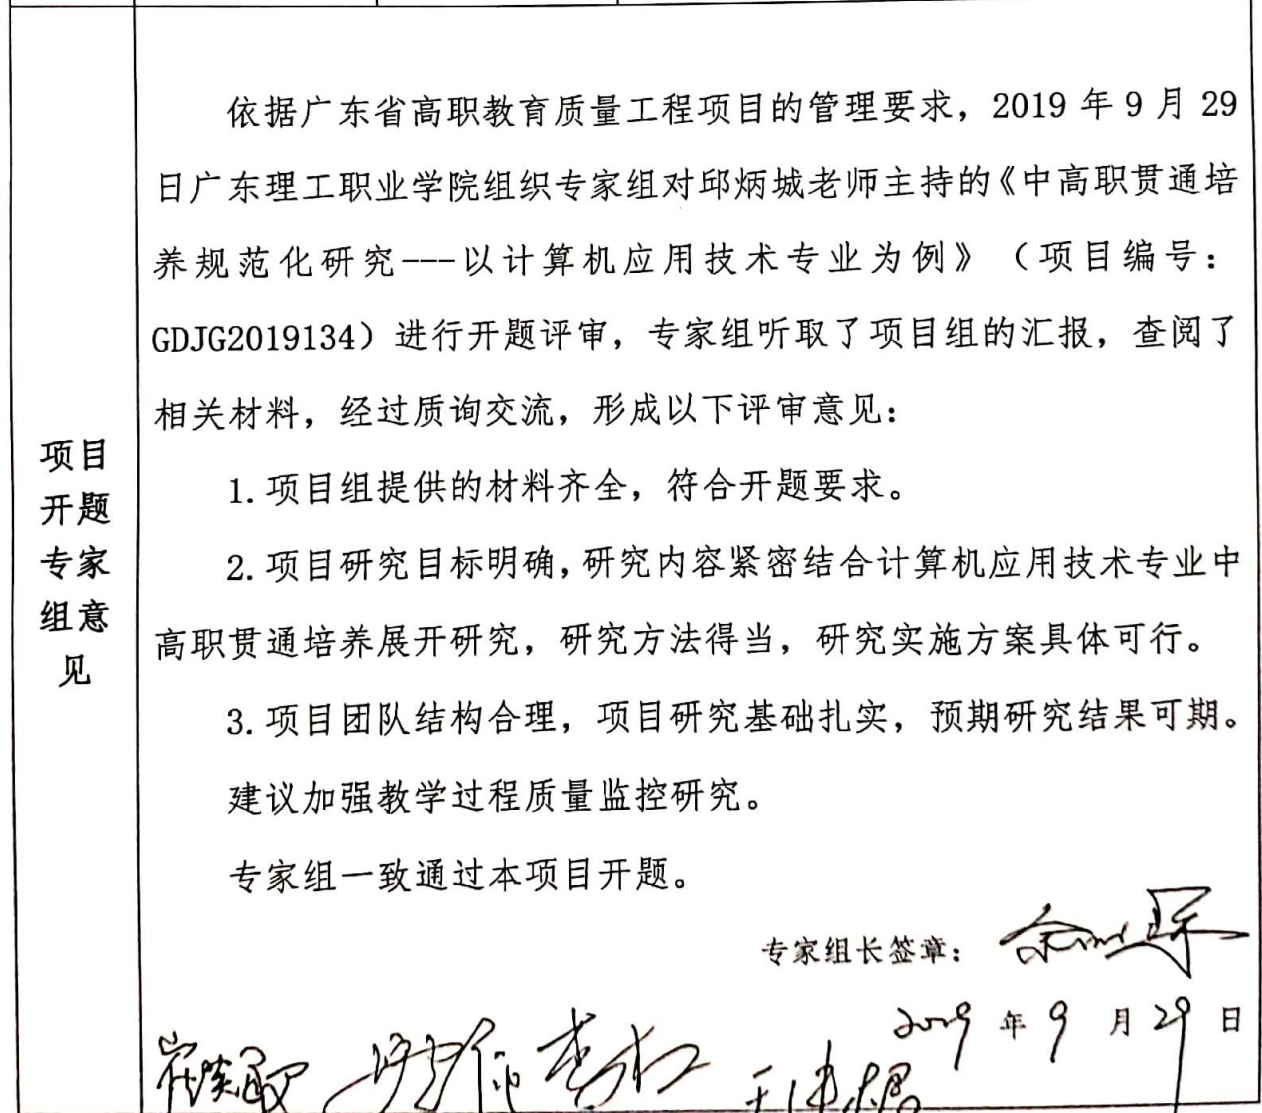 依据广东省高职教育质量工程项目的管理要求，2019 年 9 月 29
日广东理工职业学院组织专家组对邱炳城老师主持的《中高职贯通培
养规范化研究---以计算机应用技术专业为例》（项目编号：
GDJG2019134）进行开题评审，专家组听取了项目组的汇报，查阅了
相关材料，经过质询交流，形成以下评审意见：
项目
开题
专家
组意
见
1.项目组提供的材料齐全，符合开题要求。
2.项目研究目标明确，研究内容紧密结合计算机应用技术专业中
高职贯通培养展开研究，研究方法得当，研究实施方案具体可行。
3.项目团队结构合理，项目研究基础扎实，预期研究结果可期。
建议加强教学过程质量监控研究。
专家组一致通过本项目开题。
专家组长签章：
2019 年 9 月 29 日